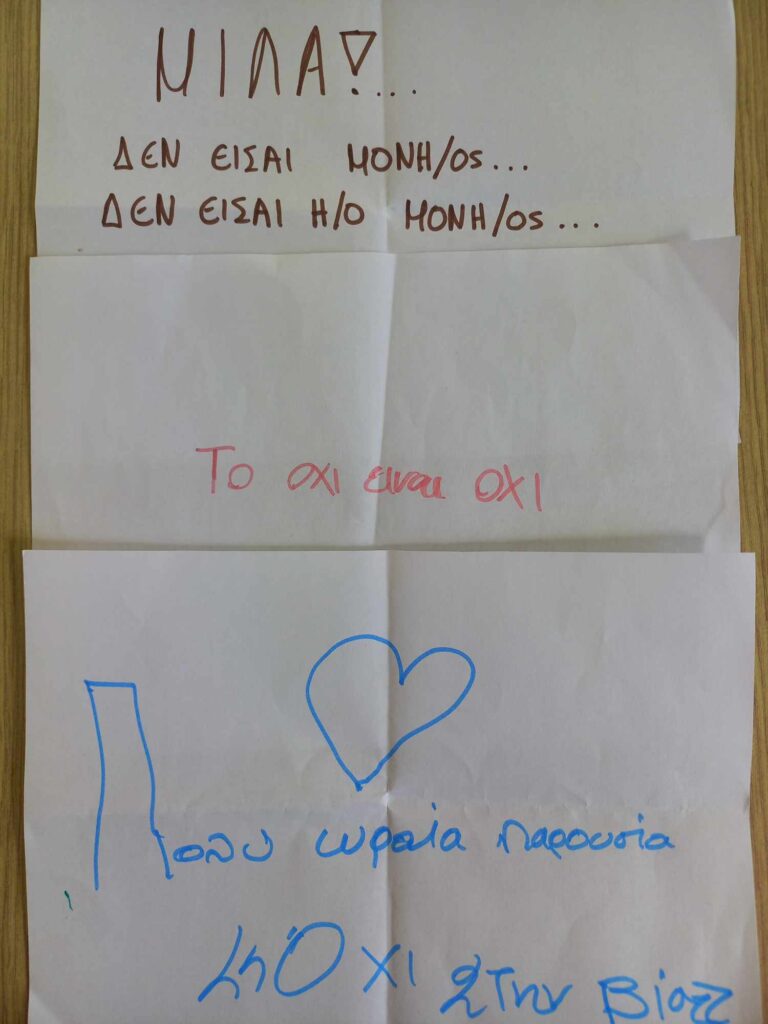 ΜΙΛΑ!...
ΔΕΝ ΕΙΣΑΙ ΜΟΝΗ/ΟΣ...
ΔΕΝ ΕΙΣΑΙ Η/Ο ΜΟΝΗ/ΟΣ...
Το οχι ειναι οχι
Πολυ ωραία παρουσία
Όχι στην βία